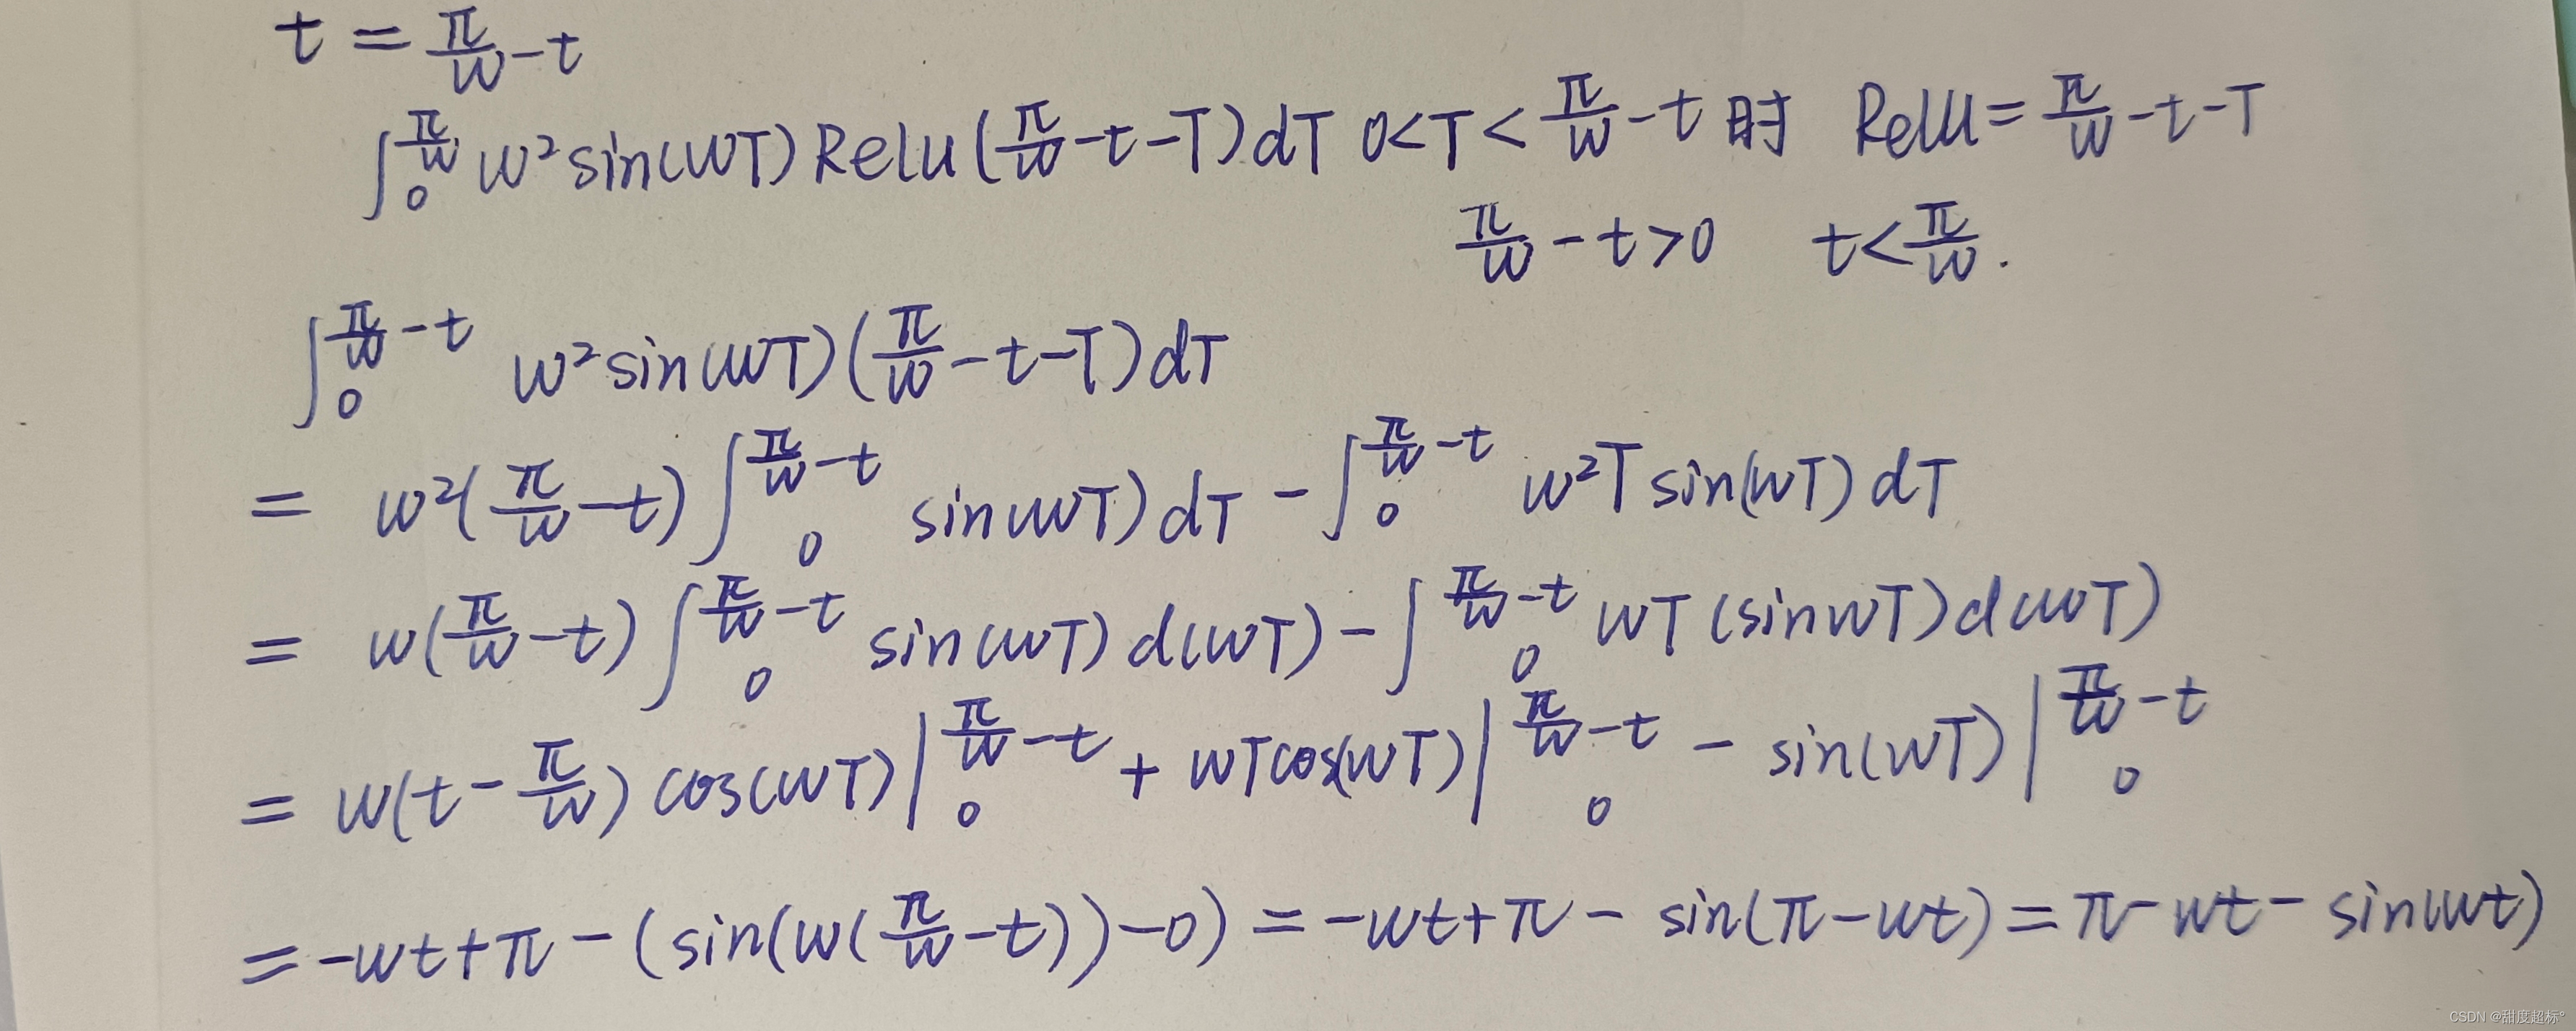 t = π/w - t
∫₀^{π/w} w² sin(wT) Relu(π/w - t - T) dT 0<T<π/w - t 时 Relu = π/w - t - T
π/w - t > 0 t < π/w .
∫₀^{π/w - t} w² sin(wT) (π/w - t - T) dT
= w² (π/w - t) ∫₀^{π/w - t} sin(wT) dT - ∫₀^{π/w - t} w² T sin(wT) dT
= w (π/w - t) ∫₀^{π/w - t} sin(wT) d(wT) - ∫₀^{π/w - t} wT (sinwT) d(wT)
= w (t - π/w) cos(wT) |₀^{π/w - t} + wT cos(wT) |₀^{π/w - t} - sin(wT) |₀^{π/w - t}
= -wt + π - (sin(w(π/w - t)) - 0) = -wt + π - sin(π - wt) = π - wt - sin(wt)
CSDN @甜度超标°